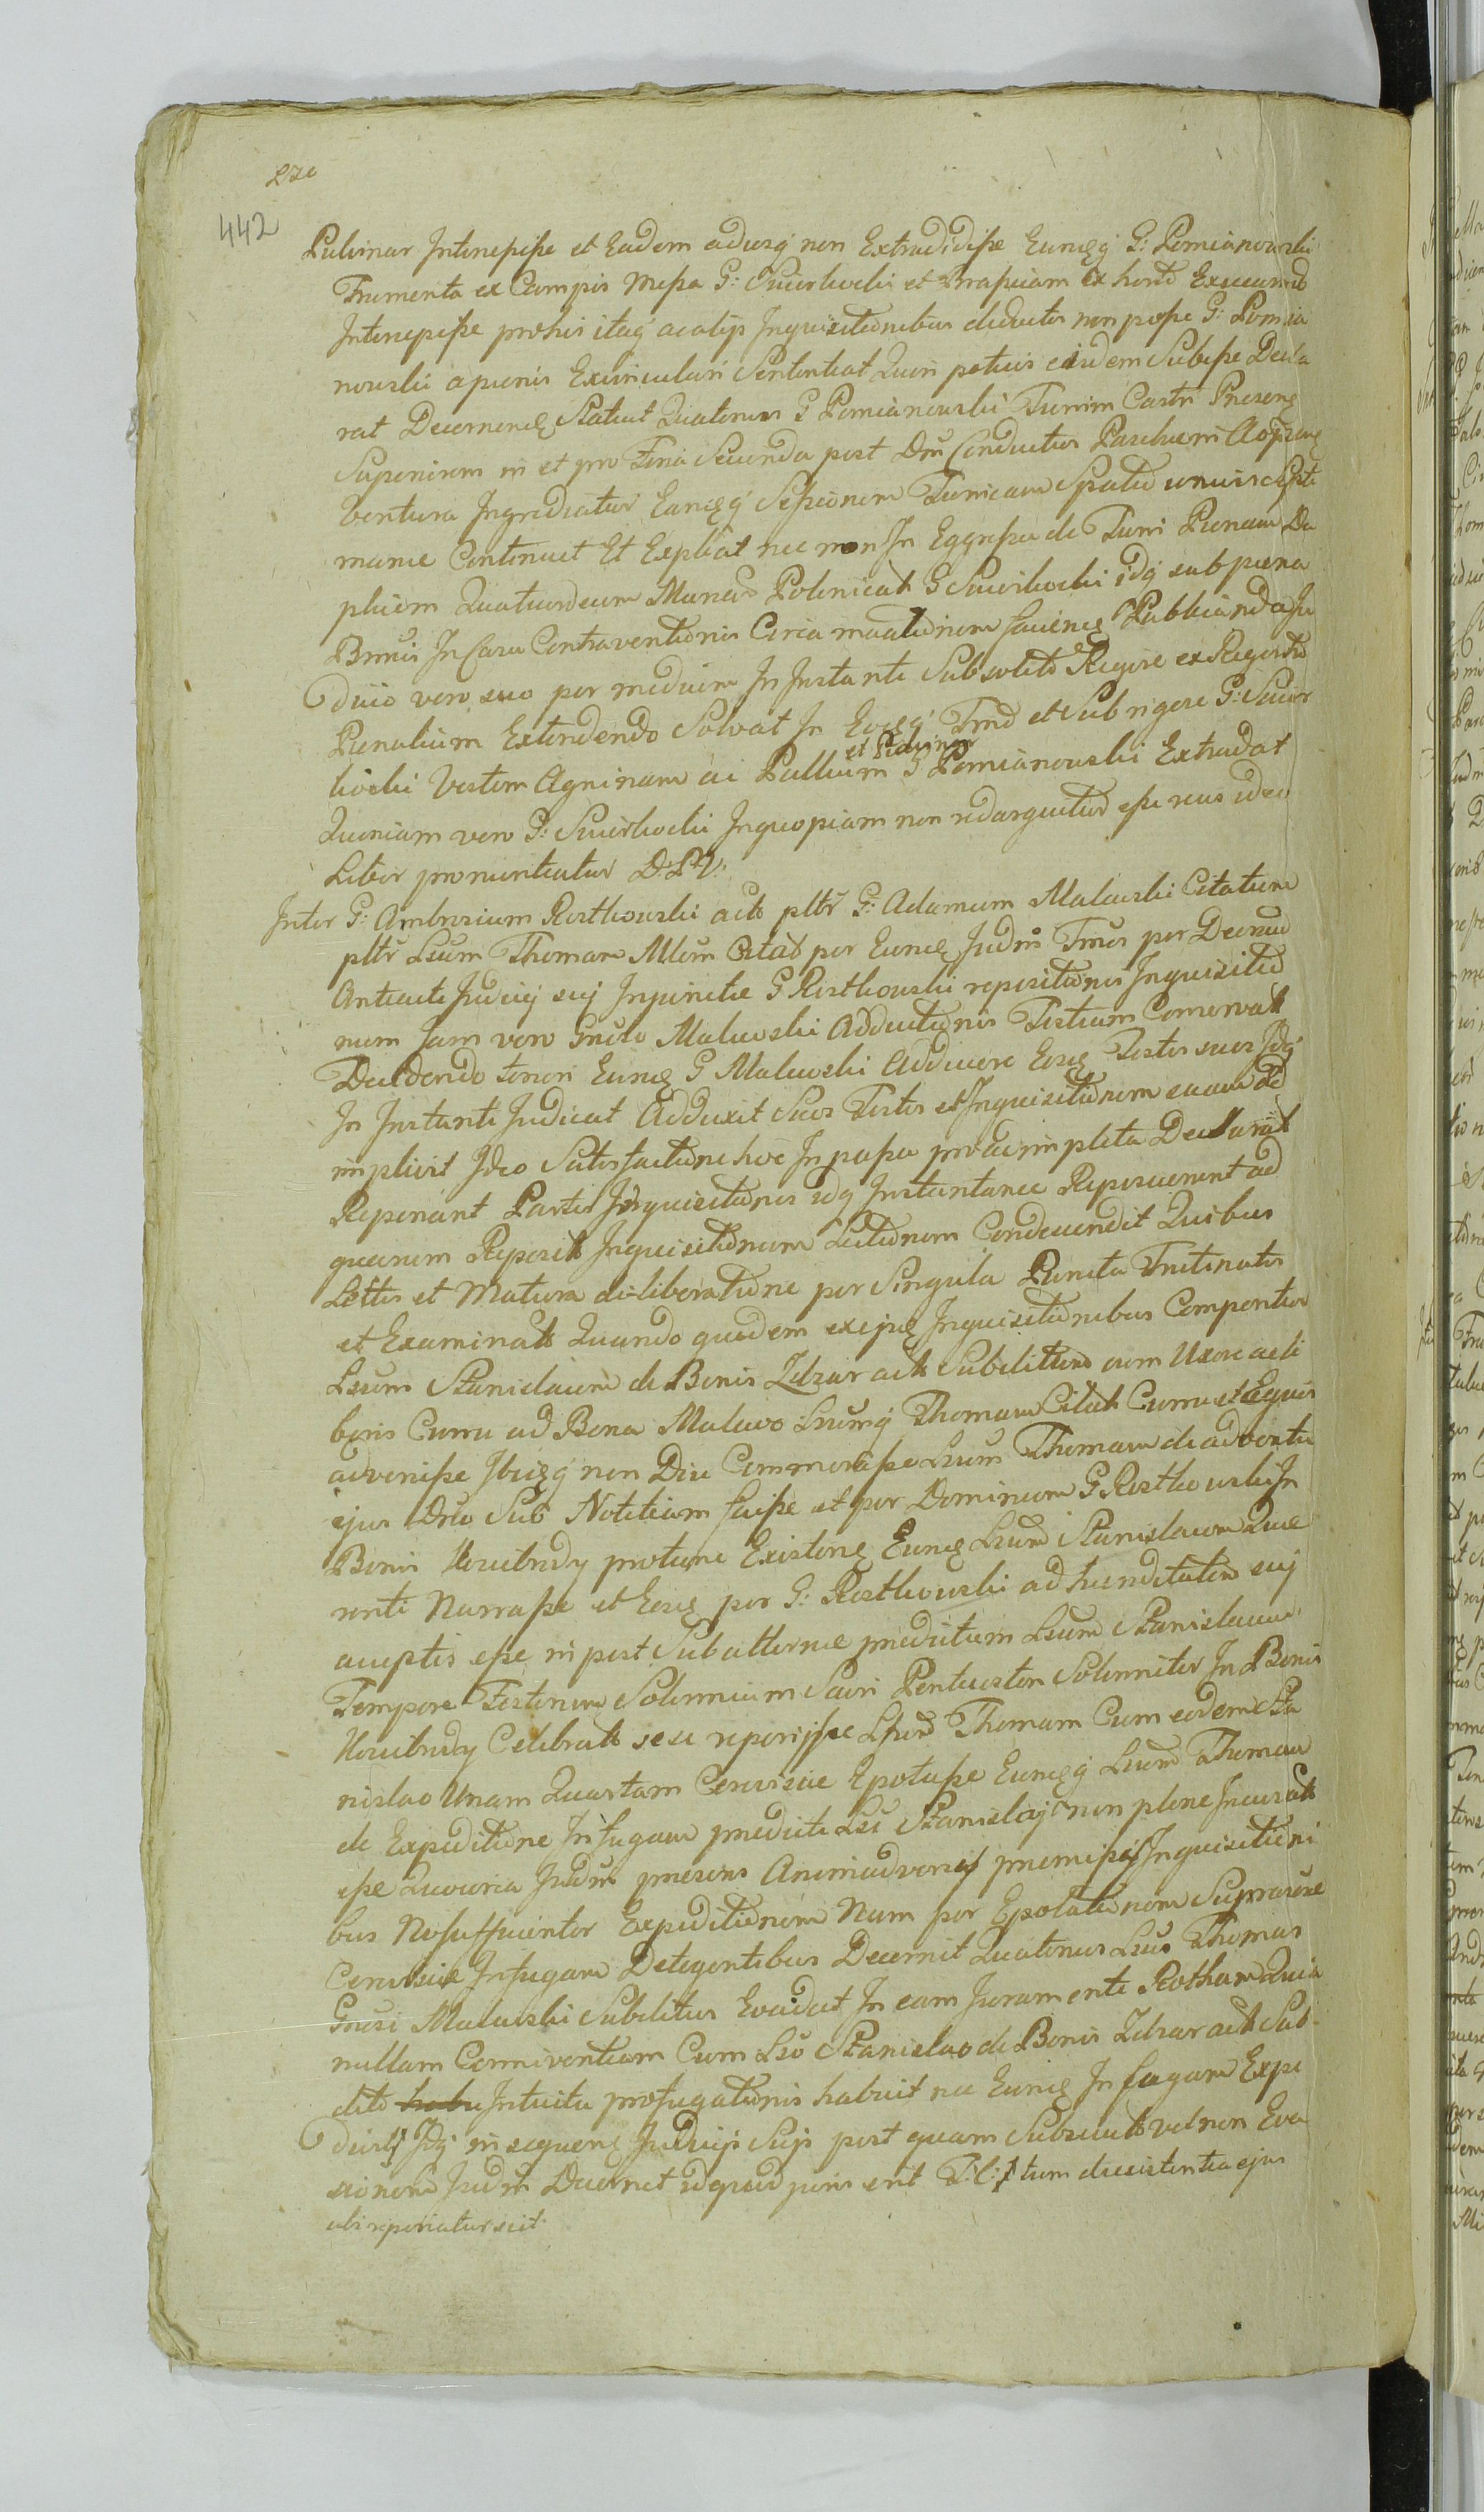 442
Pulvinar Interepisse et Eadem adusq non Extradidisse Eumq G: Pomianowski
Frumenta ex Campis Messa G: Swierkocki et
Interepisse prohis itaq acalijs Inquisitionibus deductis non posse G: Pomia
nowski apaenis Exvinculari Sententiat Quin potius eisdem Subesse Decla
rat Decernens Statuit Quatenus G Pomianowski Turrim Castri Praesens
Superiorem in et pro Feria Secunda post Dnicam Conductus Paschae
ventura Ingrediatur Eamq Sessionem Turricam Spatio unius Septi
manae Continuet Et Expleat nec non In Egressu de Turri Paenam Du
plicem Quatuordecim Marcas Polonicat G Swierkocki idq sub paena
Bnnis In Casu Contraventionis Circa maationem faciens Publicanda In
duio vero suo per medium In Instanti Sub solito Rigore ex Regestro
Paenalium Extendendo Solvat In Eodq Tmo et Sub rigore G: Swier
et Pulvinar
kocki Vestem Agninam ac Pallium G Pomianowski Extradat
Quoniam vero G: Swierkocki Inquopiam non redarguitur esse reus ideo
Liber pronuntiatur D: P: V:
Inter G: Ambrosium Rostkowski acto pltr G: Adamum Malewski Citatum
pltr Lsum Thomam Mlem Citat per Eunq Judm Tmus per Decretu
Anteacti Judicij sui Injunctae G Rostkowski repositionis Inquisitio
num Jam vero Gnoso Malewski Adductionis Testium Comservat
Decidendo teneri Eunq G Malewski Adducere Eosq Testes suos Idq
In Instanti Judicat Adduxit Suos Testes et Inquisitionem suam ad
implevit Ideo Satisfactione hoc In passu pro adimpleta Declarat
Reponant Partes Inquisitiones idq Instantanee Reposuerunt ad
quarum Reposit Inquisitionum Lectionem Condescendit Quibus
Lectis et Matura deliberatione per Singula Puncta Trutinatis
et Examinatis Quando quidem exijsq Inquisitionibus Comperitur
Lsum Stanislaum de Bonis Zdzar acto Subditum cum Uxore acli
beris Curru ad Bona Malewo Lsumq Thomam Citat Curru et Equis
advenisse Ibiqq non Diu Commorasse Lsum Thomam de adventu
ejus Dno Suo Notitiam fecisse et per Dominum G Rostkowski In
Bonis protunc Existens Eunq Lsum Stanislaum Quae
renti Narrasse et Eosq per G: Rostkowski ad haereditatem sui
acceptis esse in post Subalternae praedictum Lsum Stanislaum
Tempore Festorum Solemnium Sacri Pentecosten Solenniter In Bonis
Celebrat sese reperijsse Lsum Thomam Cum eodem Sta
nislao Unam Quartam Cerevisiae Epotasse Eumqq Lsum Thomam
de Expeditione Infugam praedicti Lsi Stanislaj non plene Incusat
esse Quocirca Judm praesens Animadversis praemissis Inquisitioni
bus Nosufficienter Expeditionem Num per Epotationem Suprascrae
Cerevisiae Infugam Detegentibus Decernit Quatenus Lsus Thomas
Gnosi Malewski Subditus Evadat In eam Juramenti Rotham Quia
nullam Conniventiam Cum Lso Stanislao de Bonis Zdzar acto Sub
dito Intuitu profugationis habuit nec Eunq In fugam Expe
divit Idq in sequens Judicijs Suis post quam Subsecut vel non Eva
sionem Judm Decernet idquid juris erit tum de existentia ejus
ubi reperiatur scit.